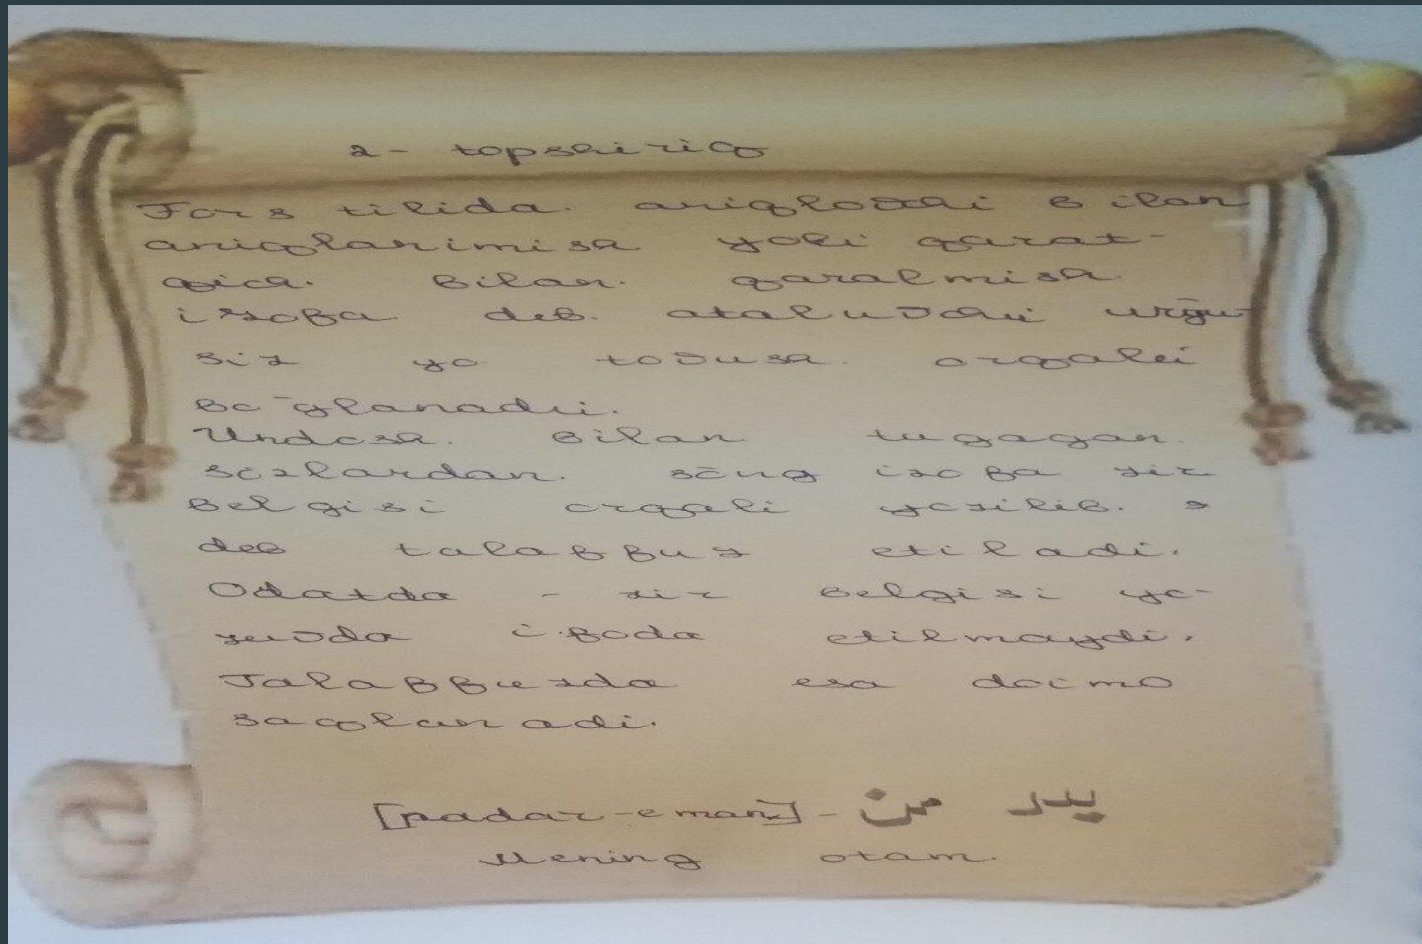 2- topshiriq
Fors tilida aniqlovchi bilan
aniqlanimish yoki qarat-
qich bilan qaralmish
izofa deb ataluvchi urg'u-
siz yo tovush orqali
bog'lanadi.
Undosh bilan tugagan
so'zlardan so'ng izofa zir
belgisi orqali yozilib e
deb talaffuz etiladi.
Odatda - zir belgisi yo-
zuvda ifoda etilmaydi.
Talaffuzda esa doimo
saqlanadi.
[padar-e man] - پدر من
Mening otam.